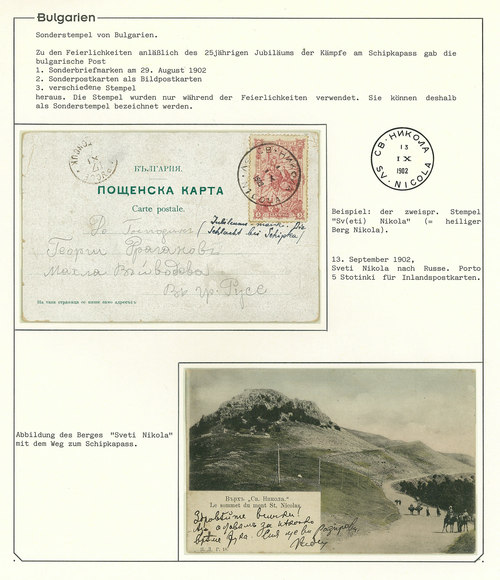 Bulgarien
Sonderstempel von Bulgarien.
Zu den Feierlichkeiten anläßlich des 25jährigen Jubiläums der Kämpfe am Schipkapass gab die
bulgarische Post
1. Sonderbriefmarken am 29. August 1902
2. Sonderpostkarten als Bildpostkarten
3. verschiedene Stempel
heraus. Die Stempel wurden nur während der Feierlichkeiten verwendet. Sie können deshalb
als Sonderstempel bezeichnet werden.
БЪЛГАРИЯ.
ПОЩЕНСКА КАРТА
Carte postale.
(Jubiläums-mark. Die
Schlacht bei Schipka)
До Господинъ
Георги
Махла
гр. Русе
На тази страница се пише само адресътъ
СВ. НИКОЛА
13
IX
1902
SV. NICOLA
Beispiel: der zweispr. Stempel
"Sv(eti) Nikola" (= heiliger
Berg Nikola).
13. September 1902,
Sveti Nikola nach Russe. Porto
5 Stotinki für Inlandspostkarten.
Abbildung des Berges "Sveti Nikola"
mit dem Weg zum Schipkapass.
Върхъ „Св. Никола."
Le sommet du mont St. Nicolas
Здравейте всички!